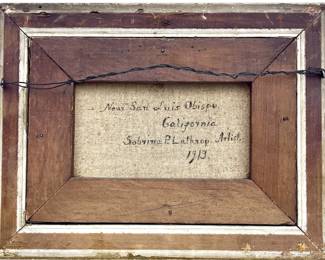 Near San Luis Obispo
California
Sabrina P. Lathrop. Artist.
1913.